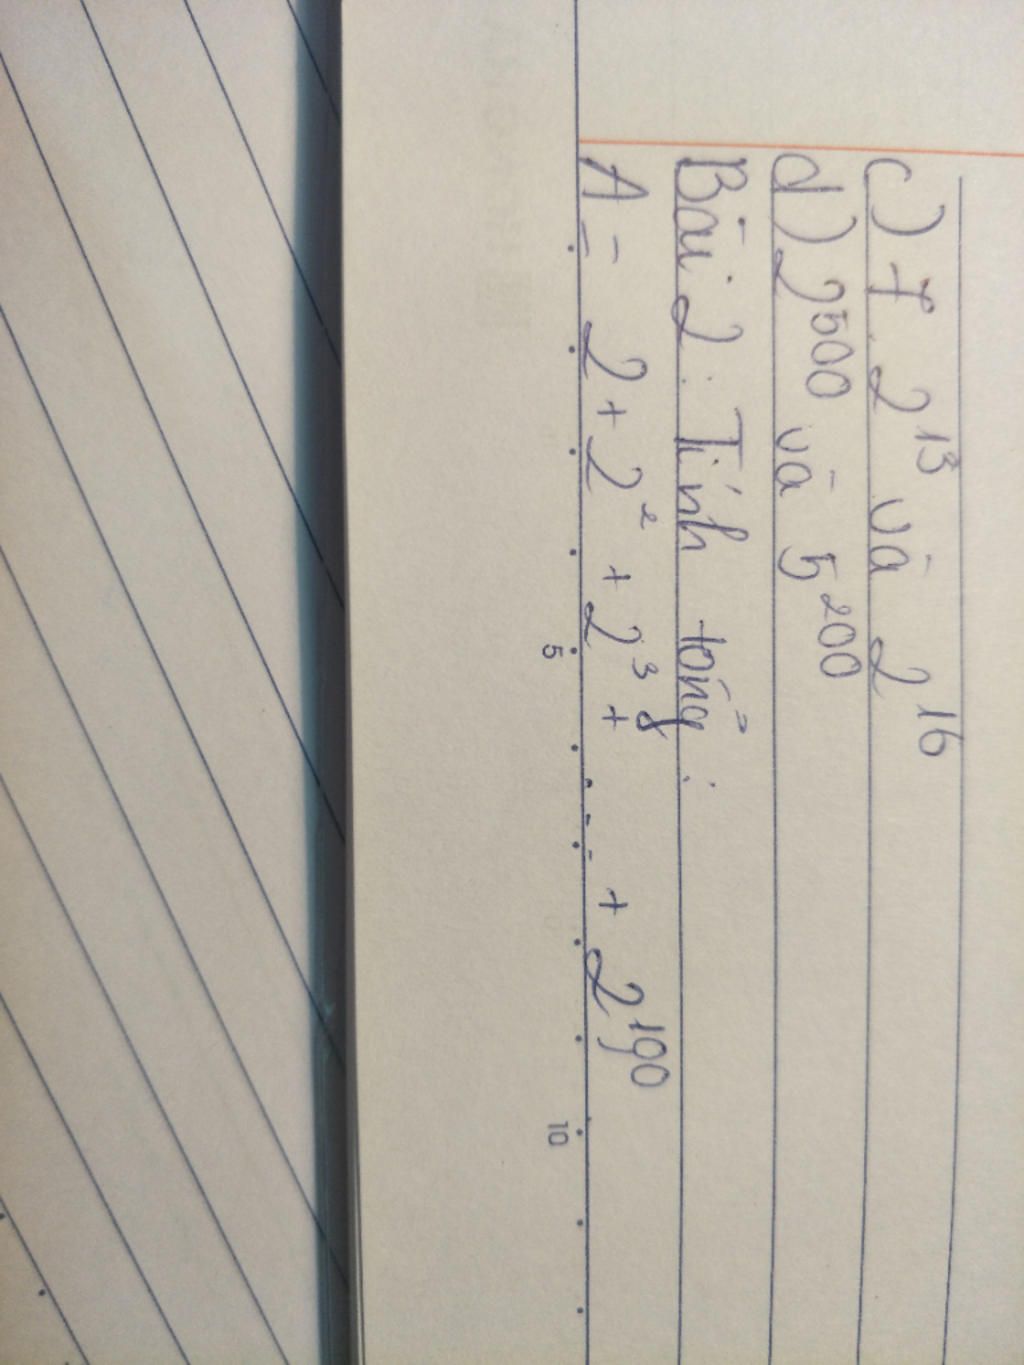 c) 7. 2¹³ và 2¹⁶
d) 2⁵⁰⁰ và 5²⁰⁰
Bài 2: Tính tổng:
A = 2 + 2² + 2³ + ... + 2¹⁹⁰
5 10